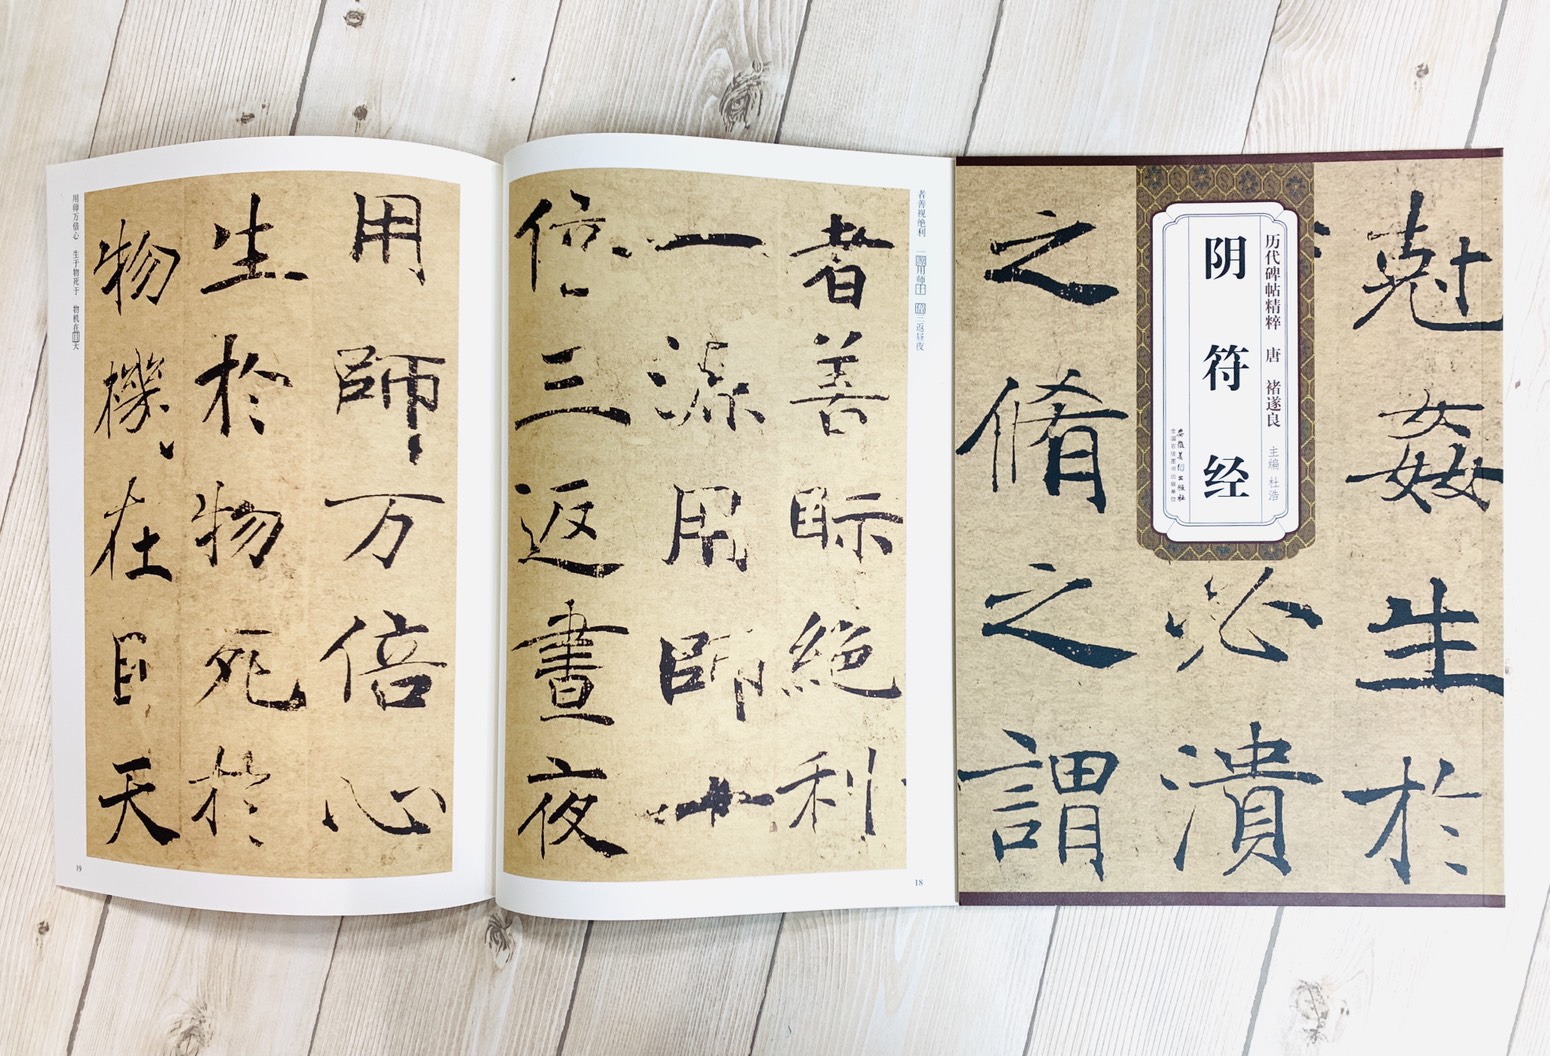 尅姦生於
必潰
之脩之謂
历代碑帖精粹 唐 褚遂良 主编 杜浩
阴符经
安徽美术出版社
全国百佳图书出版单位
者善视绝利 一源用师十 倍三返昼夜
者善眎絕利
一源用師十
倍三返晝夜
18
用師万倍心
生於物死於
物機在目天
用师万倍心 生于物死于 物机在目天
19